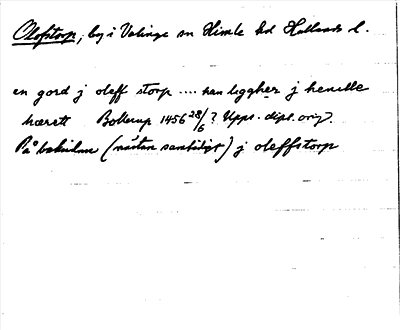 Olofstorp, by i Valinge sn Himle hd Hallands l.
en gord j oleff storp .... han leggher j hemlle
hærett Bollerup 1456 28/6? Upps. dipl. orig.
På baksidan (nästan samtidigt) j oleffstorp